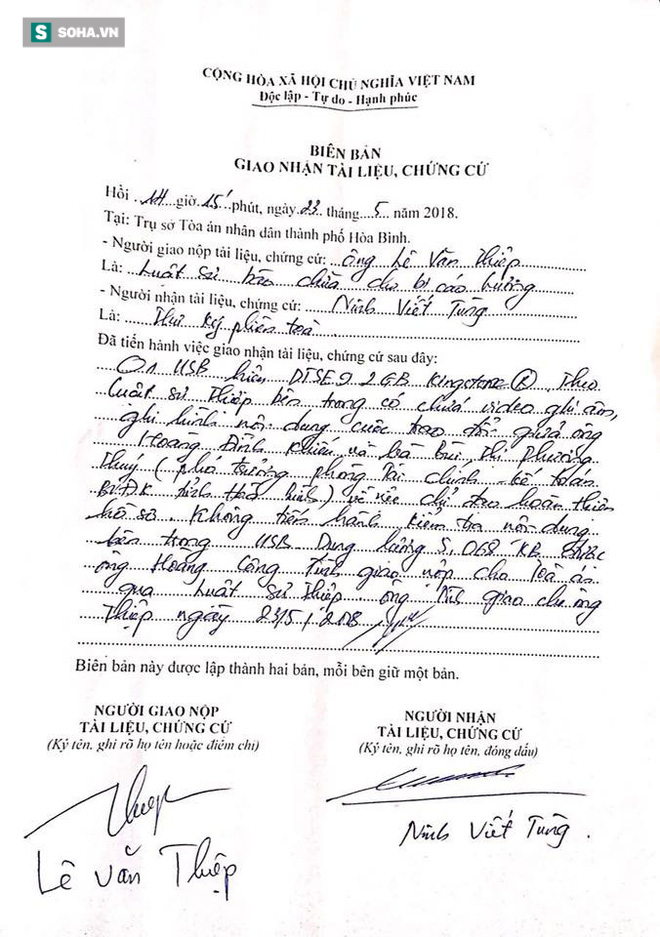 S SOHA.VN
CỘNG HÒA XÃ HỘI CHỦ NGHĨA VIỆT NAM
Độc lập - Tự do - Hạnh phúc
BIÊN BẢN
GIAO NHẬN TÀI LIỆU, CHỨNG CỨ
Hồi 14 giờ 15 phút, ngày 23 tháng 5 năm 2018.
Tại: Trụ sở Tòa án nhân dân thành phố Hòa Bình.
- Người giao nộp tài liệu, chứng cứ: ông Lê Văn Thiệp
Là: Luật sư bào chữa cho bị cáo Lương
- Người nhận tài liệu, chứng cứ: Ninh Viết Tùng
Là: Thư ký phiên toà
Đã tiến hành việc giao nhận tài liệu, chứng cứ sau đây:
01 USB hiệu DTSE9 2GB Kingstone ® Theo
Luật sư Thiệp bên trong có chứa video ghi âm,
ghi hình nội dung cuộc trao đổi giữa ông
Hoàng Đình Khiếu và bà Bùi Thị Phương
Thuý (phó trưởng phòng tài chính, kế toán
BVĐK tỉnh Hoà Bình) về việc chỉ đạo hoàn thiện
hồ sơ. Không tiến hành kiểm tra nội dung
bên trong USB Dung lượng 5,068 KB được
ông Hoàng Công Tình giao nộp cho Toà án
qua Luật sư Thiệp ông Tình giao cho ông
Thiệp ngày 23/5/2018
Biên bản này được lập thành hai bản, mỗi bên giữ một bản.
NGƯỜI GIAO NỘP
TÀI LIỆU, CHỨNG CỨ
(Ký tên, ghi rõ họ tên hoặc điểm chỉ)
NGƯỜI NHẬN
TÀI LIỆU, CHỨNG CỨ
(Ký tên, ghi rõ họ tên, đóng dấu)
Thiệp
Lê Văn Thiệp
Ninh Viết Tùng.